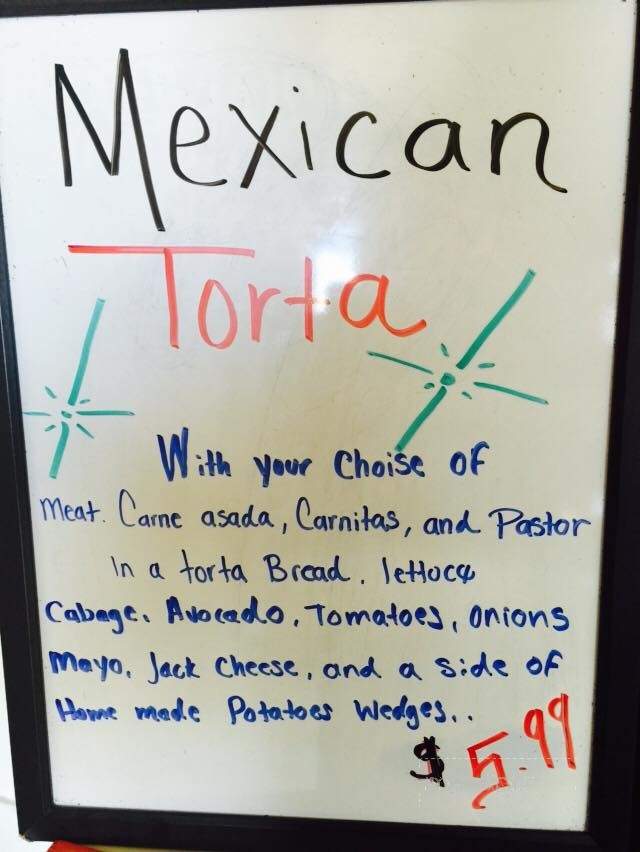 Mexican
Torta
With your Choise of
Meat. Carne asada, Carnitas, and Pastor
In a torta Bread. lettuce
Cabage. Avocado, Tomatoes, onions
Mayo, Jack Cheese, and a side of
Home made Potatoes Wedges..
$5.99